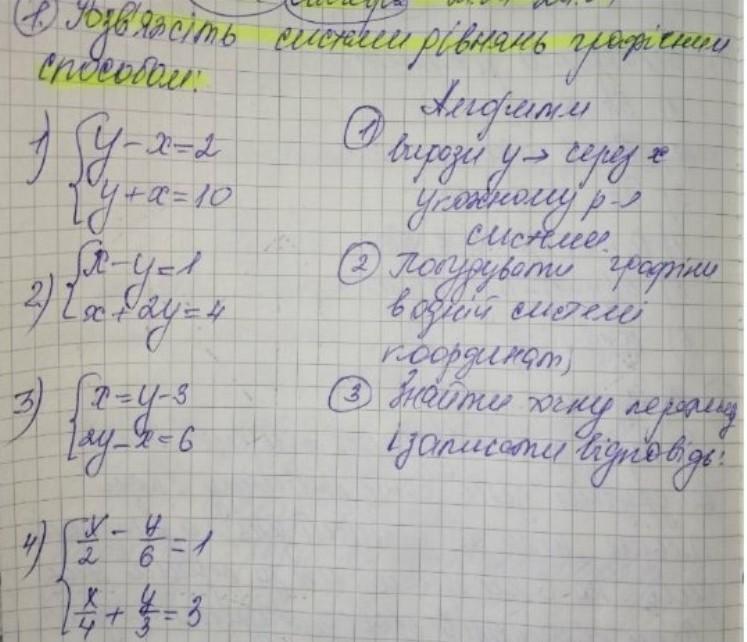 1. Розв'язсіть системи рівнянь графічним
способом:
1) { y - x = 2
y + x = 10
2) { x - y = 1
x + 2y = 4
3) { x = y - 3
2y - x = 6
4) { x/2 - y/6 = 1
x/4 + y/3 = 3
Алгоритм
① вирози y → через x
у кожному р-я
системи.
② Побудувати графіки
в одній системі
координат,
③ Знайти точку перетину
і записати відповідь: